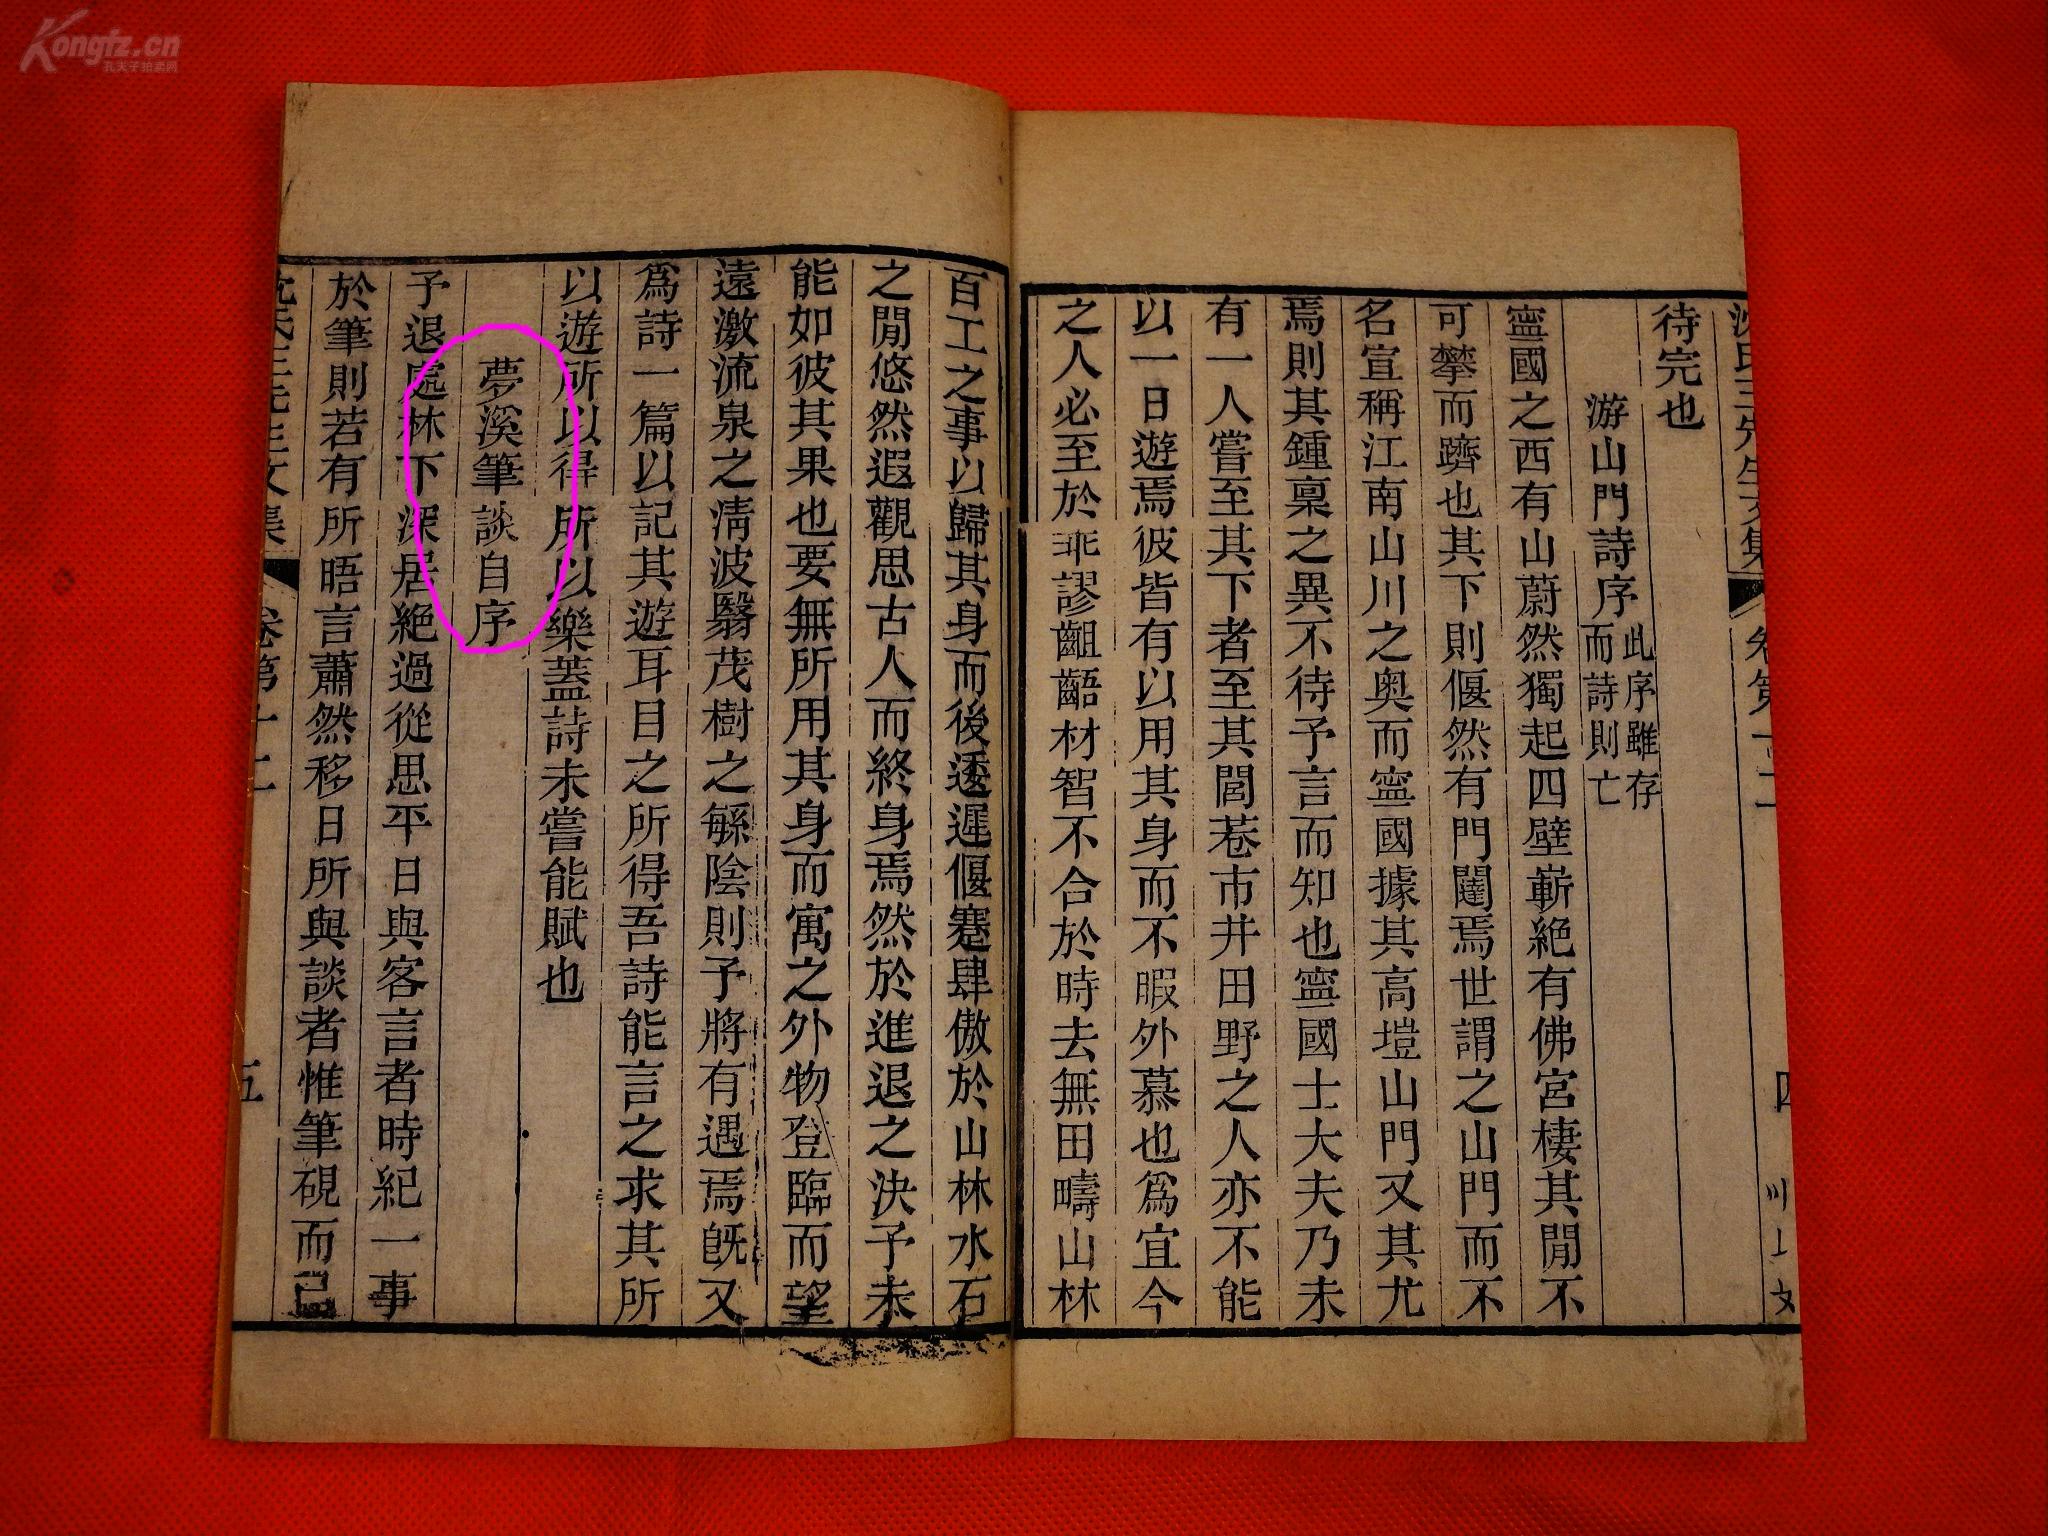 Kongfz.cn
孔夫子拍卖网
待完也
游山門詩序此序雖存而詩則亡
寧國之西有山蔚然獨起四壁嶄絶有佛宮棲其閒不
可攀而躋也其下則偃然有門闥焉世謂之山門而不
名宣稱江南山川之奥而寧國據其高塏山門又其尤
焉則其鍾稟之異不待予言而知也寧國士大夫乃未
有一人嘗至其下者至其閭巷市井田野之人亦不能
以一日遊焉彼皆有以用其身而不暇外慕也爲宜今
之人必至於乖謬齟齬材智不合於時去無田疇山林
百工之事以歸其身而後逶遲偃蹇肆傲於山林水石
之閒悠然遐觀思古人而終身焉然於進退之決予未
能如彼其果也要無所用其身而寓之外物登臨而望
遠激流泉之淸波翳茂樹之緐陰則予將有遇焉旣又
爲詩一篇以記其遊耳目之所得吾詩能言之求其所
以遊所以得所以樂蓋詩未嘗能賦也
夢溪筆談自序
予退處林下深居絶過從思平日與客言者時紀一事
於筆則若有所晤言蕭然移日所與談者惟筆硯而已
沈氏三先生文集 卷第十二 五